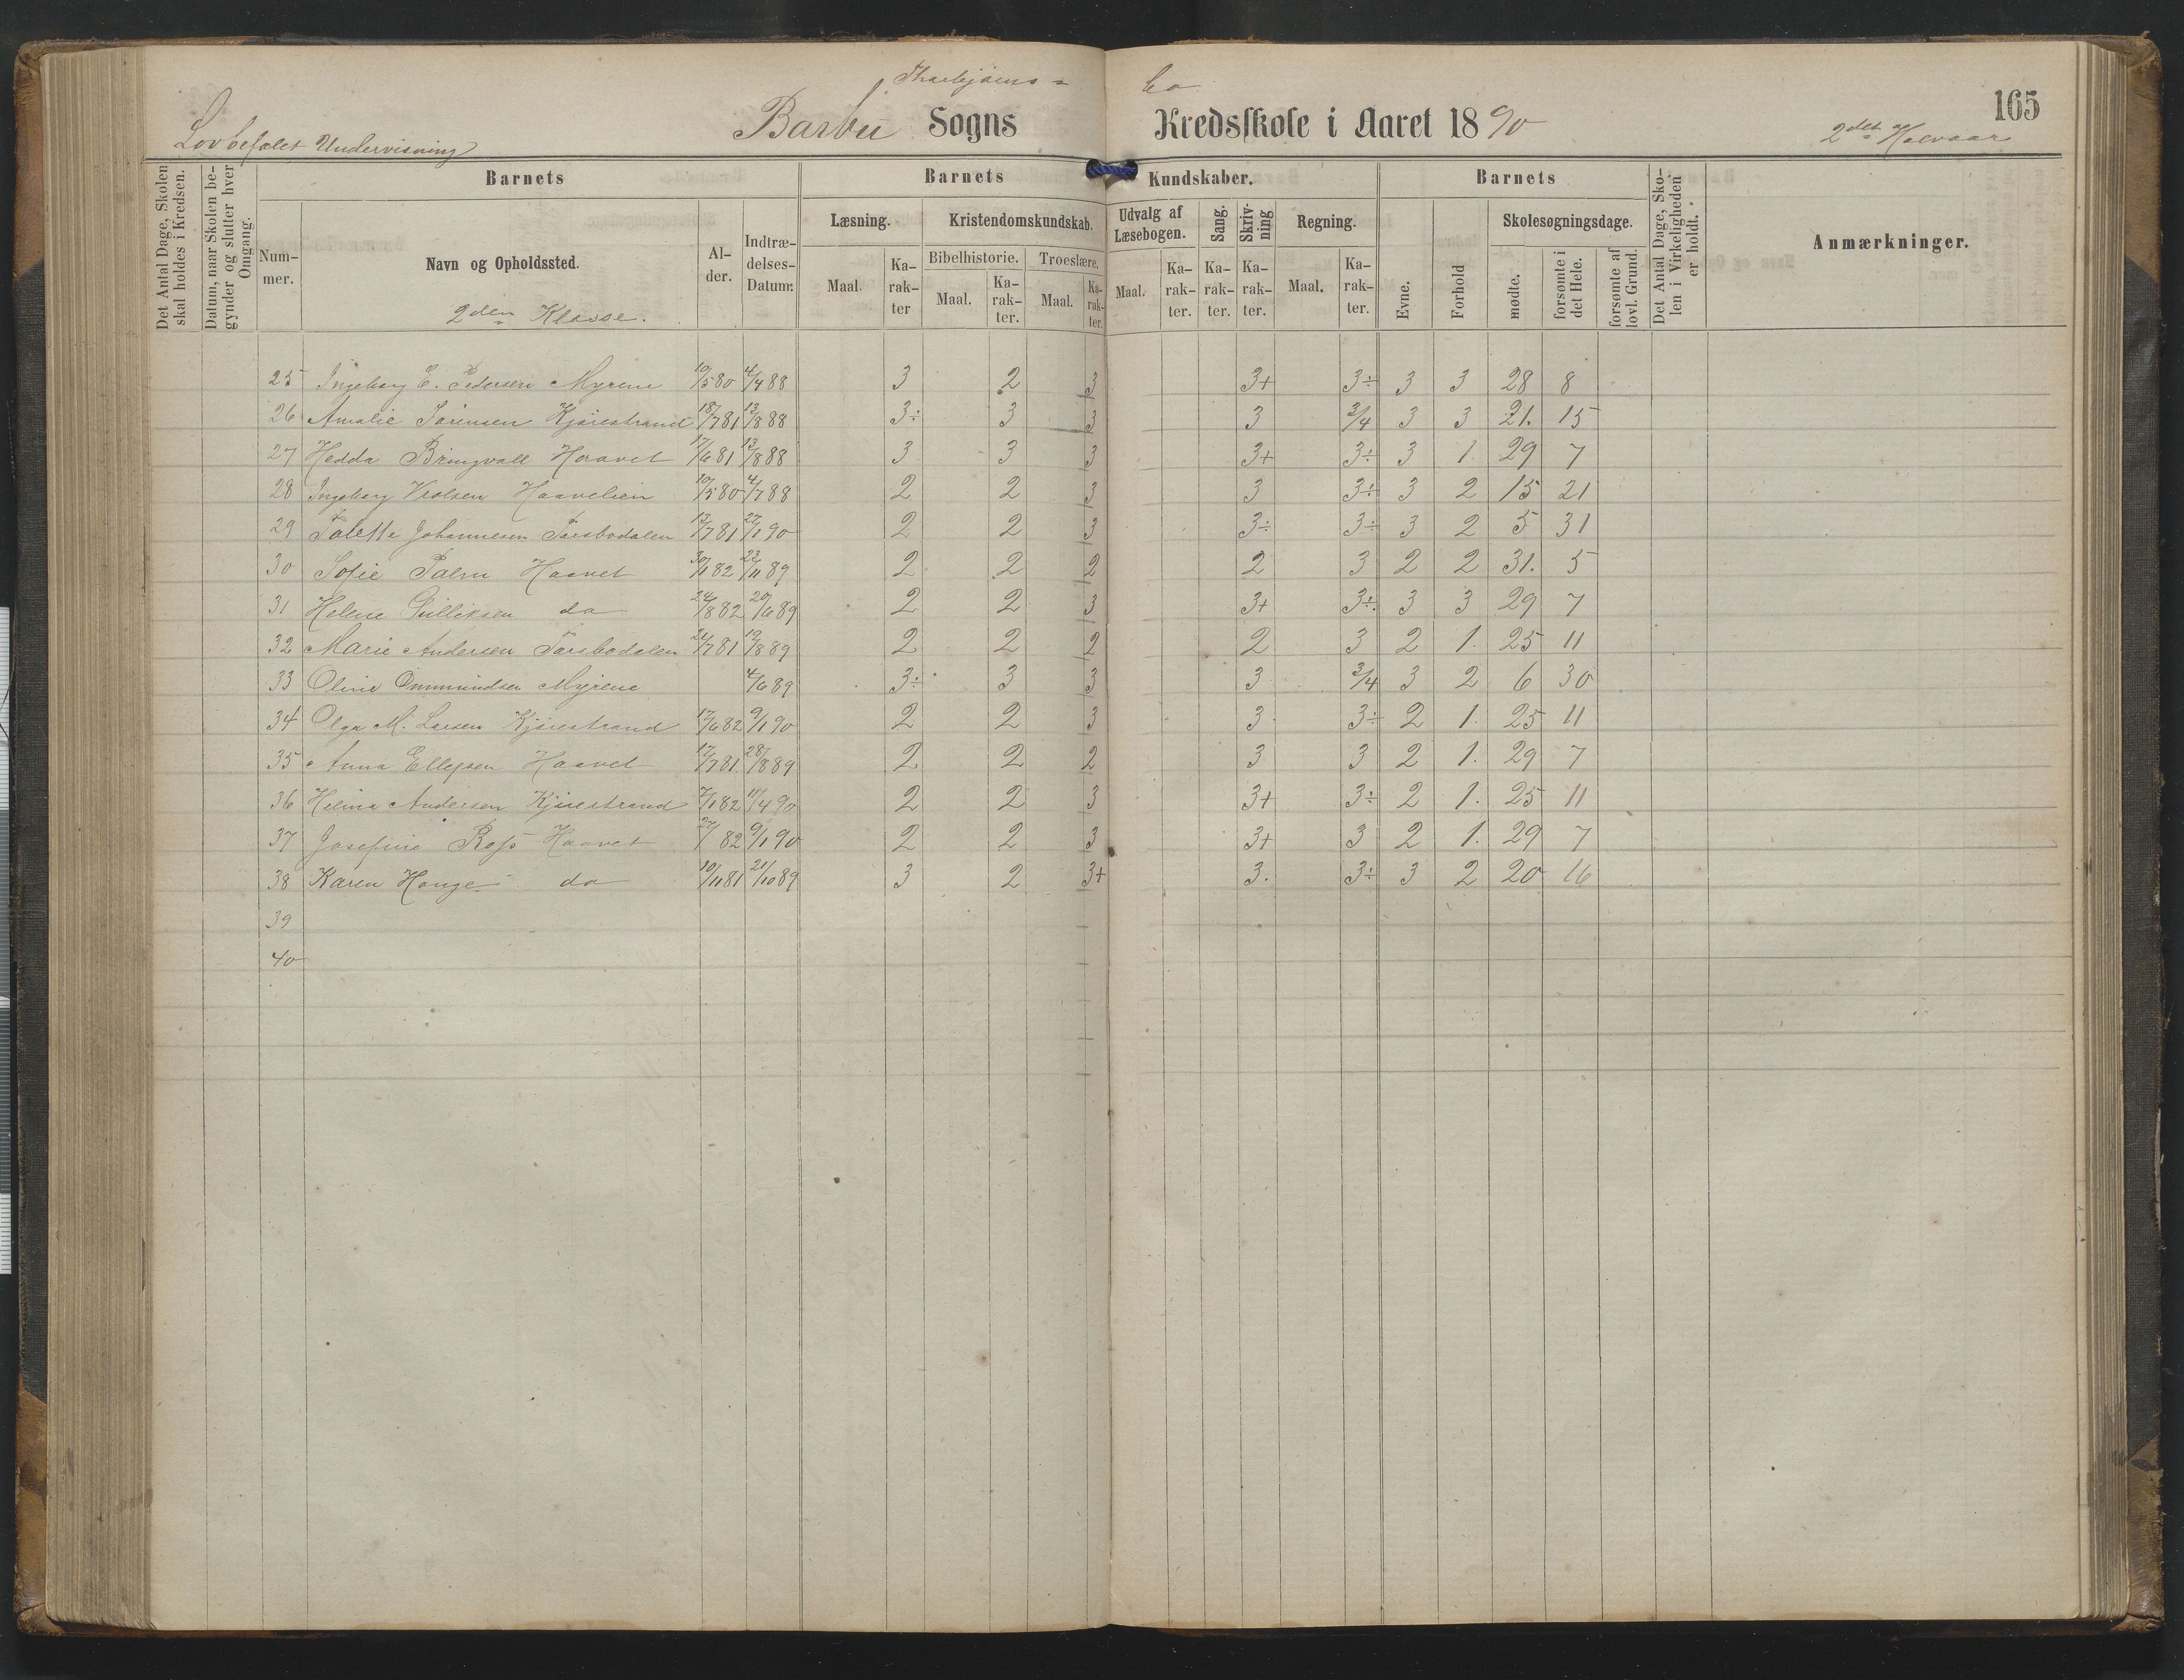 Lovbefalet Undervisning
Barbu Sogns Kredsskole i Aaret 1890
2det Halvaar
165
Det Antal Dage, Skolen skal holdes i Kredsen.
Datum, naar Skolen begynder og slutter hver Omgang.
Barnets
Nummer.
Navn og Opholdssted.
2den Klasse.
Alder.
Indtrædelses-Datum:
Barnets Kundskaber.
Læsning.
Maal.
Karakter
Kristendomskundskab.
Bibelhistorie.
Maal.
Karakter.
Troeslære.
Maal.
Karakter.
Udvalg af Læsebogen.
Maal.
Karakter.
Sang.
Karakter.
Skrivning
Karakter.
Regning.
Maal.
Karakter.
Barnets
Evne.
Forhold
Skolesøgningsdage.
mødte.
forsømte i det Hele.
forsømte af lovl. Grund.
Det Antal Dage, Skolen i Virkeligheden er holdt.
Anmærkninger.
25 Ingeborg E. Pedersen Myrene 10/5 80 4/4 88 3 2 3 3+ 3÷ 3 3 28 8
26 Amalie Sørensen Kjøiestrand 18/7 81 13/8 88 3÷ 3 3 3 3/4 3 3 21. 15
27 Hedda Bringvall Haavet 17/6 81 13/8 88 3 3 3 3+ 3÷ 3 1 29 7
28 Ingeborg Haavelien 10/5 80 4/7 88 2 2 3 3 3÷ 3 2 15 21
29 Johannesen Torsbodalen 13/7 81 27/1 90 2 2 3 3÷ 3÷ 3 2 5 31
30 Sofie Palm Haavet 30/1 82 23/11 89 2 2 2 2 3 2 2 31. 5
31 Helene Gulliksen do 24/8 82 20/6 89 2 2 3 3+ 3÷ 3 3 29 7
32 Marie Andersen Torsbodalen 24/7 81 19/8 89 2 2 2 2 3 2 1. 25 11
33 Oline Ommundsen Myrene 4/6 89 3÷ 3 3 3 3/4 3 2 6 30
34 Olga M. Larsen Kjøiestrand 17/6 82 9/1 90 2 2 3 3 3÷ 2 1. 25 11
35 Anna Ellefsen Haavet 17/7 81 28/8 89 2 2 2 3 3 2 1. 29 7
36 Helina Andersen Kjøiestrand 7/1 82 11/4 90 2 2 3 3+ 3÷ 2 1. 25 11
37 Josefine Ross Haavet 27/ 82 9/1 90 2 2 3 3+ 3 2 1. 29 7
38 Karen Hauge do 10/11 81 21/10 89 3 2 3+ 3. 3÷ 3 2 20 16
39
40